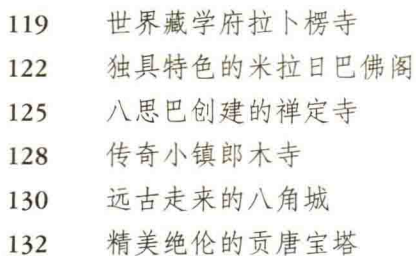 119 世界藏学府拉卜楞寺
122 独具特色的米拉日巴佛阁
125 八思巴创建的禅定寺
128 传奇小镇郎木寺
130 远古走来的八角城
132 精美绝伦的贡唐宝塔